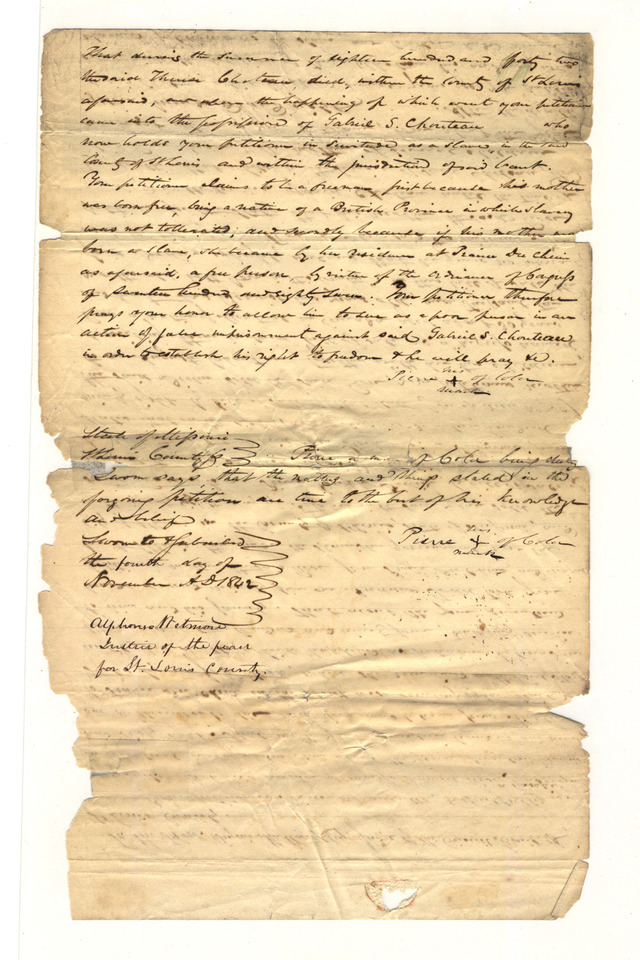 That during the summer of eighteen hundred and forty two
the said Therese Choteau died, within the County of St Louis
aforesaid, and upon the happening of which event your petitioner
came into the possession of Gabriel S. Chouteau who
now holds your petitioner in servitude as a slave, in the said
County of St Louis and within the jurisdiction of said Court.
Your petitioner claims to be a freeman first because his mother
was born free, being a native of a British Province in which Slavery
was not tollerated; and secondly because if his mother was
born a slave, she became by her residence at Prairie Du Chein
as aforesaid, a free person, by virtue of the Ordinance of Congress
of Seventeen hundred and eighty seven. Your petitioner therefore
prays your honor to allow him to sue as a poor person in an
action of false imprisonment against said Gabriel S. Chouteau
in order to establish his right to freedom & he will pray &c.
his
Pierre X of Color
mark
State of Missouri
St Louis County ss Pierre a man of Color being duly
sworn says that the matters and things stated in the
foregoing petition are true to the best of his knowledge
and belief
his
Pierre X of Color
mark
Sworn to & subscribed
the fourth day of
November A.D 1842
Alphonso Wetmore
Justice of the peace
for St. Louis County.